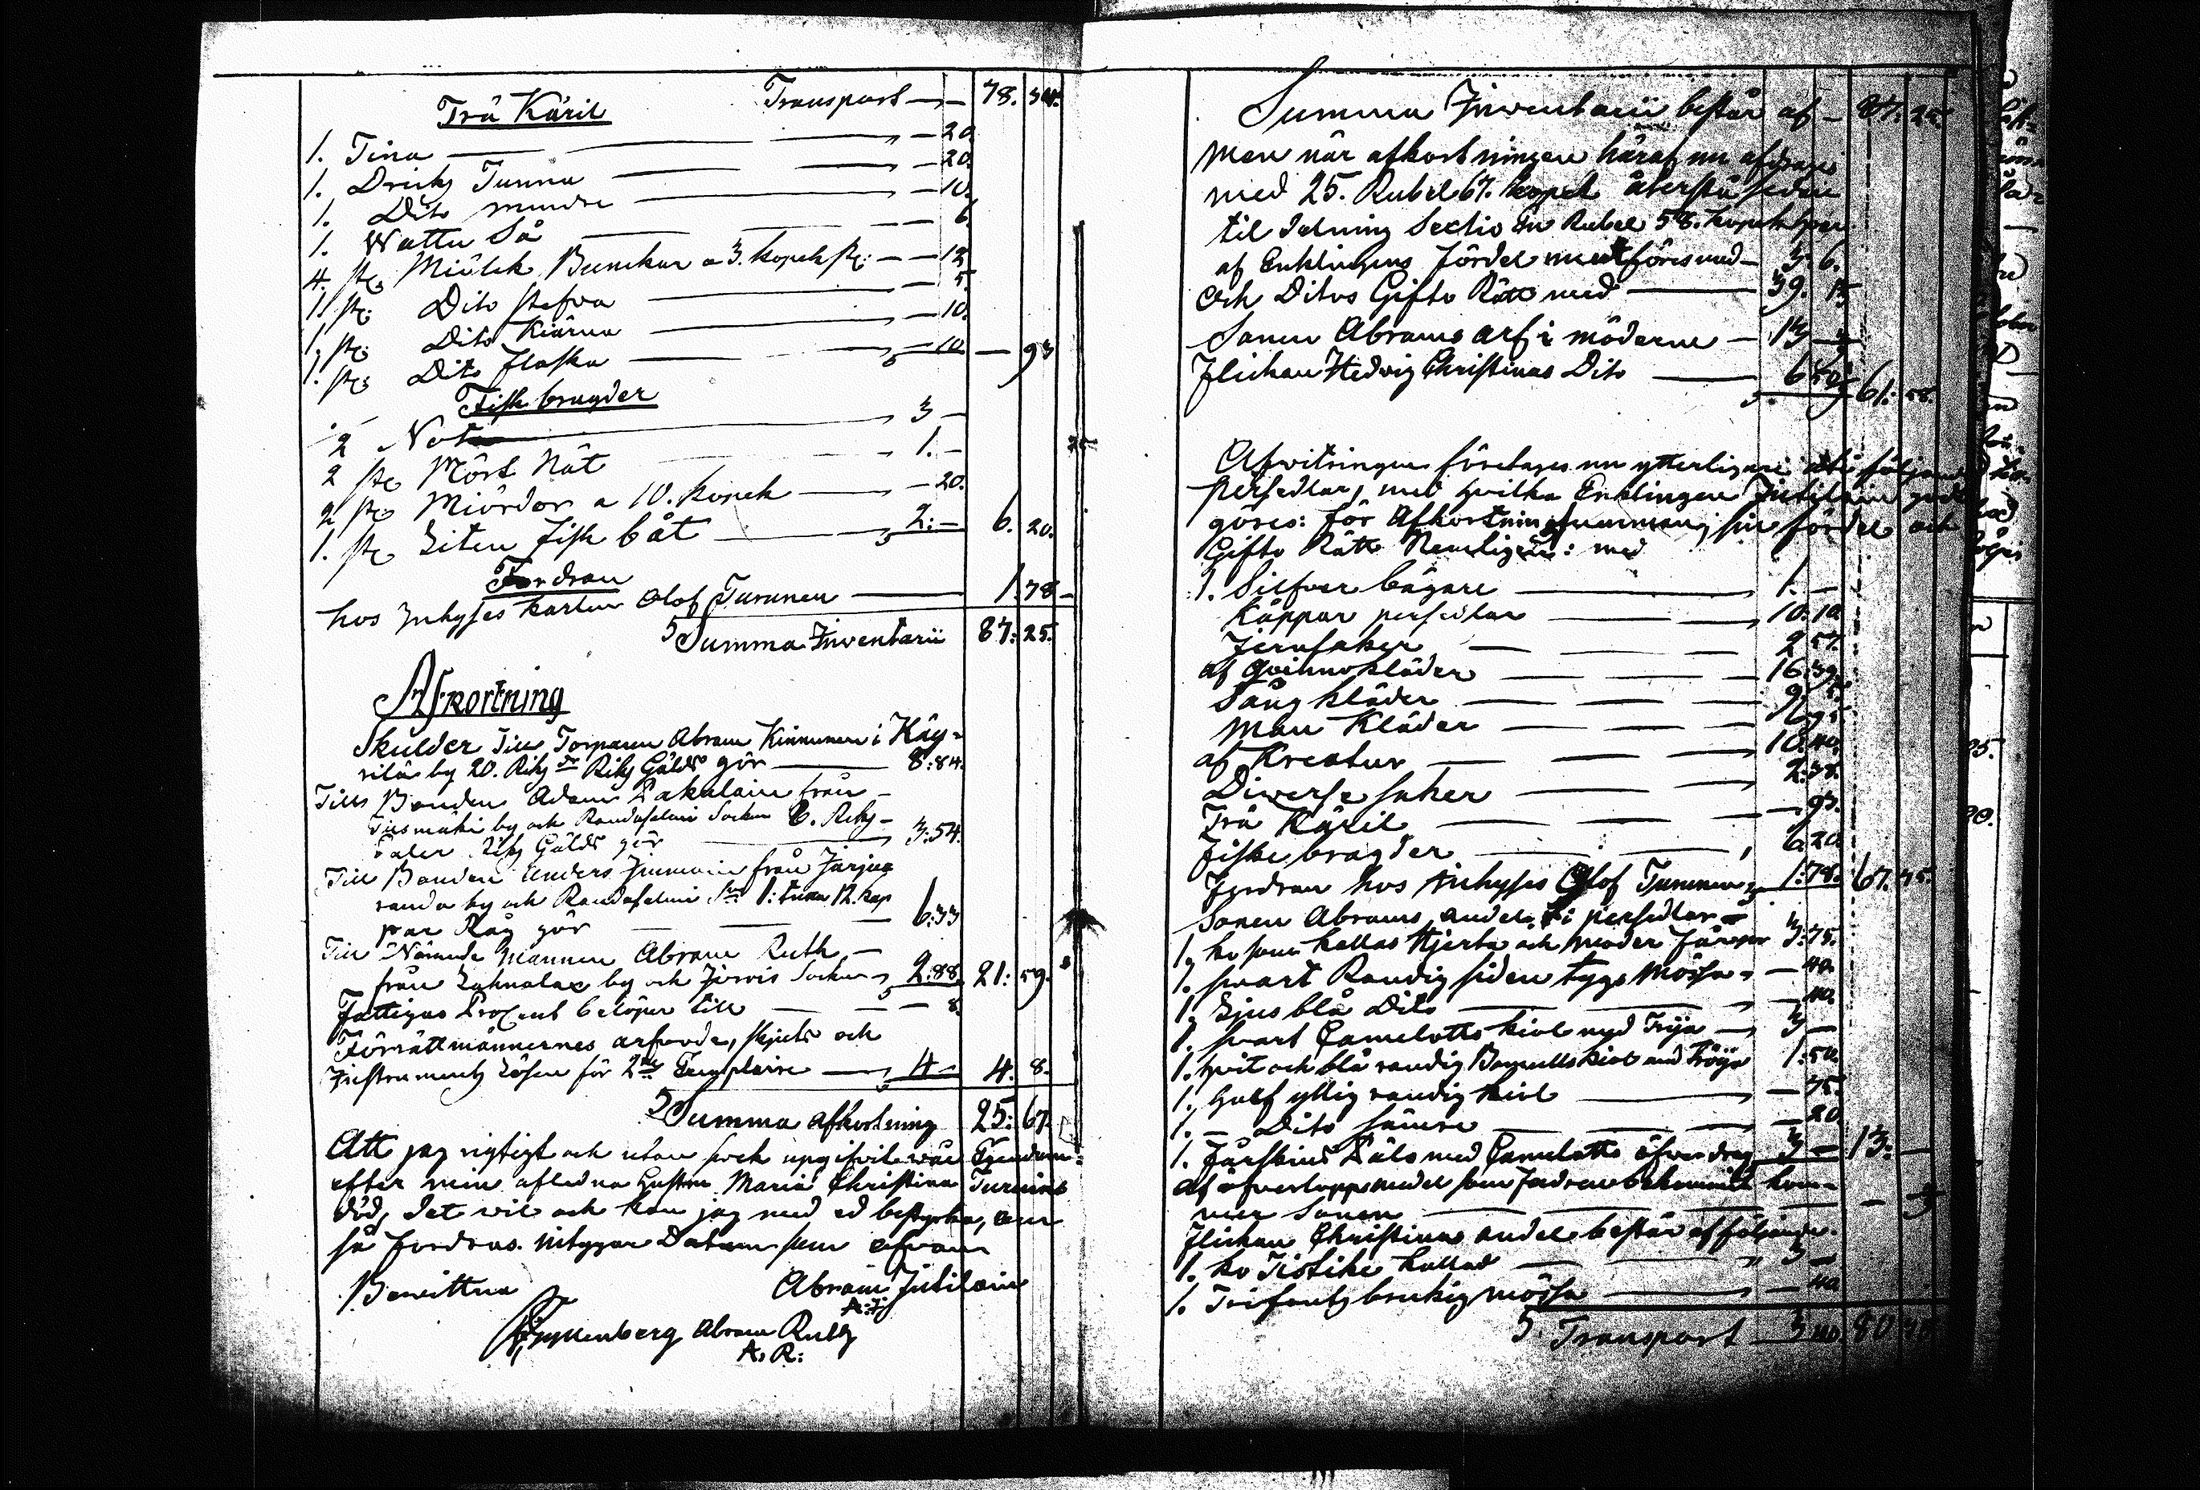 Transport — — 78. 34.
Trä Käril
1. Tina — — 20.
1. Dricks Tunna — — 20.
1. Dito mindre — — 10.
1. Wattu Så — — 6.
4. st. Miölck Bunckar a 3. kopek st: — — 12
1 st. Dito stefva — — 5.
1 st. Dito Kiärna — — 10.
1. st. Dito flaska — — 10 — 93
Fisk bragder
2 Not — 3 —
2 st. Mört Nät — 1. —
2 st. Miördor a 10. kopek — — 20.
1. st. Liten fisk båt — 2: — 6. 20.
Fordran
hos Inhyses karlen Olof Turunen — 1. 78 —
Summa Inventarii 87: 25.
Afkortning
Skulder Till Torparen Abram Kinnunen i Käy-
rilä by 20. Riks dr Riks Gälds gör — 8:84.
Till Bonden Adam Pakalain från —
by och Randasalmi Socken 8. Riks-
daler Riks Gälds gör — 3:54.
Till Bonden Anders Immoin från Järjus
randa by och Randasalmi Sn 1: tuna 12. kap
par Råg gör — 6:33
Till Nämndemannen Abram Ruth —
från by och Jorois Socken 2:88. 21: 59.
Fattigas Procent belöper till — — 8.
Förrättmännernes arfvode, skjuts och
Instruments Lösen för 2ne Exemplaire — 4 — 4. 8.
Summa afkortning 25: 67.
Att jag rigtigt och utan svek upgifvit wår Egendom
efter min aflidna hustru Maria Christina Turuins
död, det wil och kan jag med ed bestyrka, om
så fordras. utsupra Datum som ofvan
Bewittna Abram Jutilain
A:J:
Abram Ruth
A. R:
Summa Inventarii består af — 87. 25.
Men när afkortningen häraf nu afdrages
med 25. Rubel 67. kopek återstå sedan
til delning Sextio En Rubel 58. kopek hvar
af Enklingens fördel utföres med — 3. 6.
och Ditos Gifto Rätt med — 39. 1
Sonen Abrams arf i möderne — 13
Flickan Hedvig Christinas Dito — 6 50 61: 58.
Afvitringen företages nu ytterligare uti följande
persedlar, med hvilka Enklingen Jutilain god
göres: för Afkortnings summan, sin fördel och
Gifto Rätt Nemligen: med
1. Silfver bägare — 1. —
Koppar persedlar — 10. 10
Jernsaker — 2 57.
af qvinnokläder — 16. 39.
Säng kläder — 9.
Man Kläder —
af Kreatur — 10. 40.
Diverse saker — 2. 38.
Trä Käril — — 93.
Fiske bragder — 6. 20
Fordran hos Inhyses Olof Turunen 1:78. 67.
Sonen Abrams andel i persedlar
1. ko som kallas Hjerta och 3:75.
1. svart Randig siden tygs Mössa — — 40.
1. Ljus blå Dito — — 40.
1. svart Camelotts kiol med Tröja — 3 —
1. hvit och blå randig Bomulls kiol med Tröja 1:50.
1. half yllig randig kiol — — 75.
1. — Dito sämre — — 20.
1. Fårskins Päls med Camelotts öfverdrag 3 — 13. —
af öfverlopps medel som Fadren bekommit kom-
mer Sonen — —
Flickan Christinas andel består af följande.
1. ko Tiotiki kallad — 3 —
1. brukig mössa — — 40
Transport — 3 40. 80